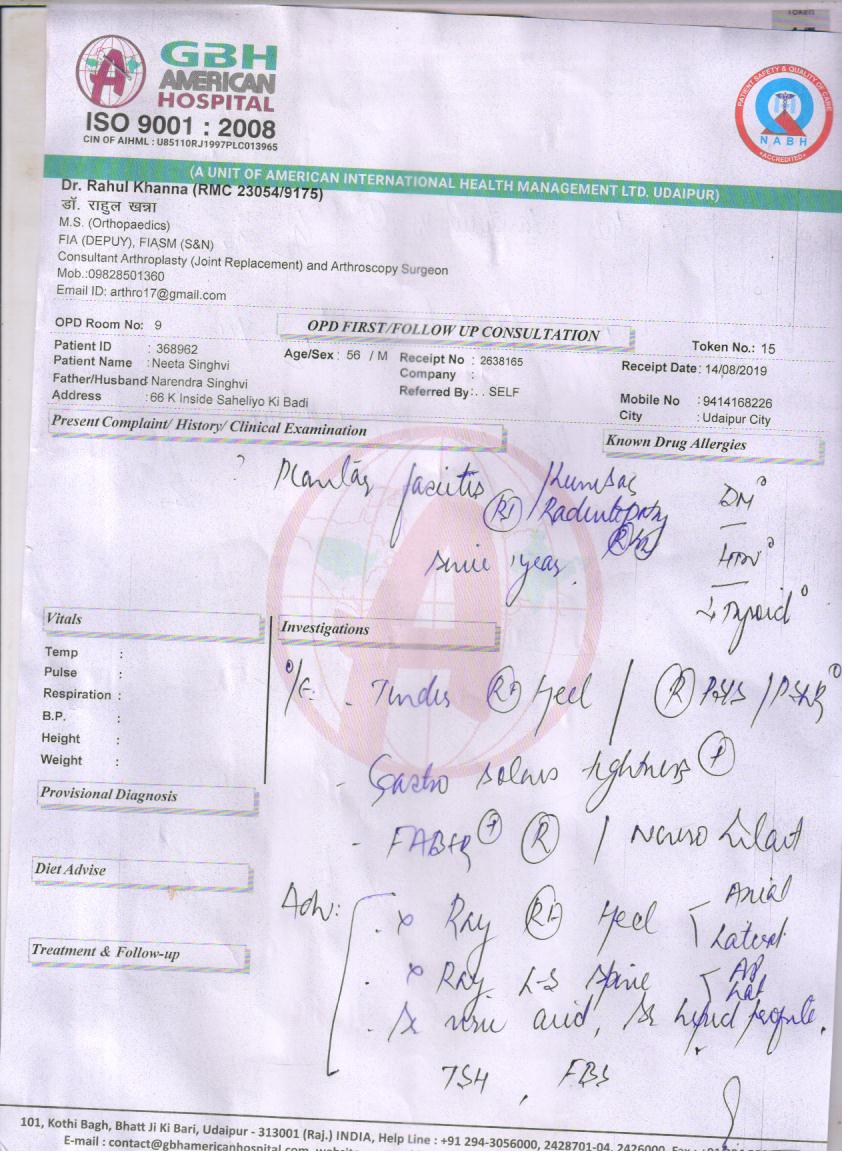 TOKEN
GBH
AMERICAN
HOSPITAL
ISO 9001 : 2008
CIN OF AIHML : U85110RJ1997PLC013965
PATIENT SAFETY & QUALITY OF CARE
NABH
ACCREDITED
(A UNIT OF AMERICAN INTERNATIONAL HEALTH MANAGEMENT LTD. UDAIPUR)
Dr. Rahul Khanna (RMC 23054/9175)
डॉ. राहुल खन्ना
M.S. (Orthopaedics)
FIA (DEPUY), FIASM (S&N)
Consultant Arthroplasty (Joint Replacement) and Arthroscopy Surgeon
Mob.:09828501360
Email ID: arthro17@gmail.com
OPD Room No: 9
OPD FIRST/FOLLOW UP CONSULTATION
Token No.: 15
Patient ID : 368962 Age/Sex : 56 / M Receipt No : 2638165 Receipt Date: 14/08/2019
Patient Name : Neeta Singhvi Company :
Father/Husband Narendra Singhvi Referred By: . . SELF Mobile No : 9414168226
Address : 66 K Inside Saheliyo Ki Badi City : Udaipur City
Present Complaint/ History/ Clinical Examination
Known Drug Allergies
? Plantar fasciitis Rt / Lumbar Radiculopathy
since 1 year.
DM
HTN
Thyroid
Vitals
Investigations
Temp :
Pulse :
Respiration :
B.P. :
Height :
Weight :
O/E. - Tender Rt Heel / R
- Gastro soleus tightness +
- FABER + R / Neuro
Provisional Diagnosis
Diet Advise
Treatment & Follow-up
Adv:
. X Ray Rt Heel Axial Lateral
. X Ray L-S Spine AP Lat
. Sr uric acid, Sr lipid profile.
TSH , FBS
101, Kothi Bagh, Bhatt Ji Ki Bari, Udaipur - 313001 (Raj.) INDIA, Help Line : +91 294-3056000, 2428701-04, 2426000
E-mail : contact@gbhamericanhospital.com